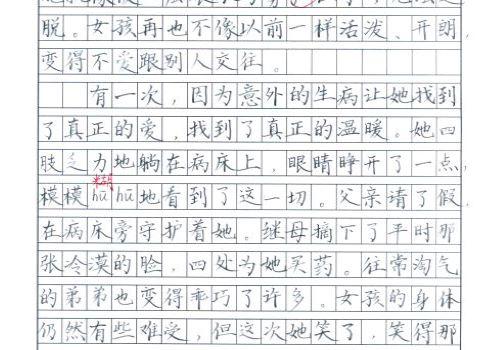 脱。女孩再也不像以前一样活泼、开朗，
变得不爱跟别人交往。
有一次，因为意外的生病让她找到
了真正的爱，找到了真真正的温暖。她四
肢乏力地躺在病床上，眼睛睁开了一点，
糊
模模hūhū地看到了这一切。父亲请了假，
在病床旁守护着她。继母摘下了平时那
张冷漠的脸，四处为她买药。往常淘气
的弟弟也变得乖巧了许多。女孩的身体
仍然有些难受，但这次她笑了，笑得那